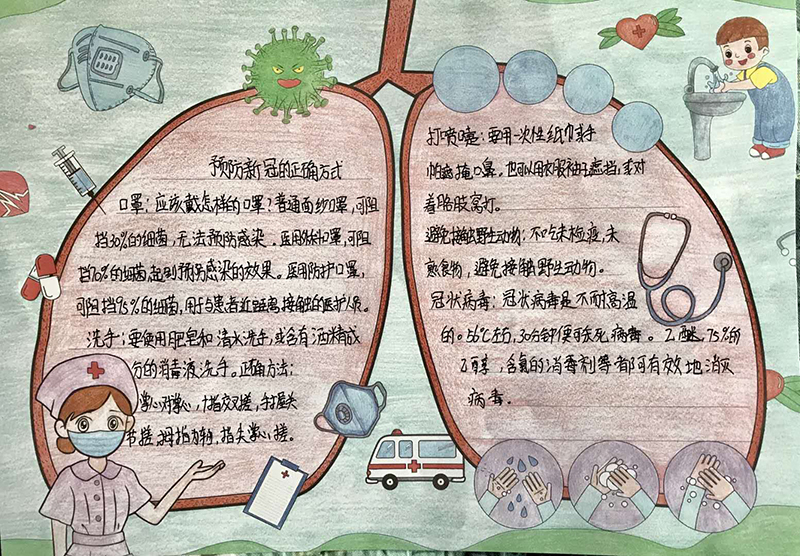 预防新冠的正确方式
口罩：应该戴怎样的口罩？普通面纱口罩，可阻
挡30%的细菌，无法预防感染。医用外科口罩，可阻
挡70%的细菌起到预防感染的效果。医用防护口罩，
可阻挡95%的细菌，用于与患者近距离接触的医护人员。
洗手：要使用肥皂和清水洗手，或含有酒精成
分的消毒液洗手。正确方法：
掌心对掌心，十指交叉搓，手握关
节搓，拇指力转，指尖掌心搓。
打喷嚏：要用一次性纸巾或手
帕遮掩口鼻。也可以用衣服袖子遮挡，或对
着胳肢窝打。
避免接触野生动物：不吃未检疫，未
煮食物，避免接触野生动物。
冠状病毒：冠状病毒是不耐高温
的。56℃左右，30分钟便可杀死病毒。乙醚，75%的
乙醇，含氯的消毒剂等都可有效地消灭
病毒。